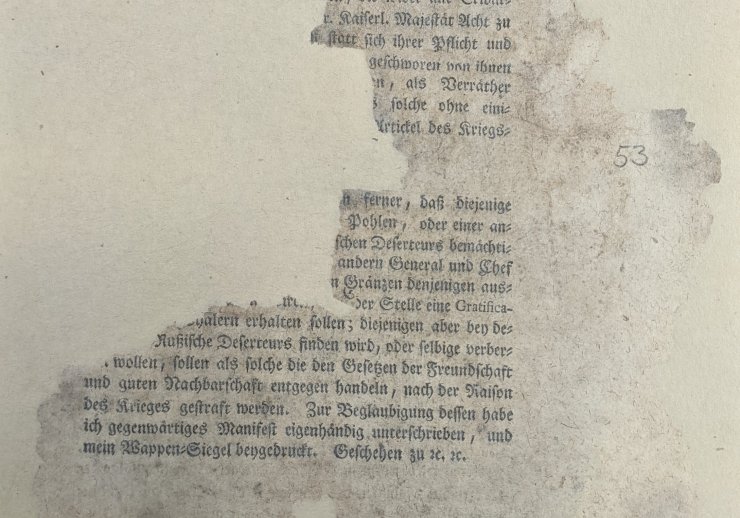 r. Kaiserl. Majestät Acht zu
statt sich ihrer Pflicht und
geschworen von ihnen
als Verräther
solche ohne eini-
Artickel des Kriegs-
53
ferner, daß diejenige
Pohlen, oder einer an-
schen Deserteurs bemächti-
andern General und Chef
n Gränzen denjenigen aus-
der Stelle eine Gratifica-
thalern erhalten sollen; diejenigen aber bey de-
Rußische Deserteurs finden wird, oder selbige verber-
wollen, sollen als solche die den Gesetzen der Freundschaft
und guten Nachbarschaft entgegen handeln, nach der Raison
des Krieges gestraft werden. Zur Beglaubigung dessen habe
ich gegenwärtiges Manifest eigenhändig unterschrieben, und
mein Wappen-Siegel beygedruckt. Geschehen zu ꝛc. ꝛc.